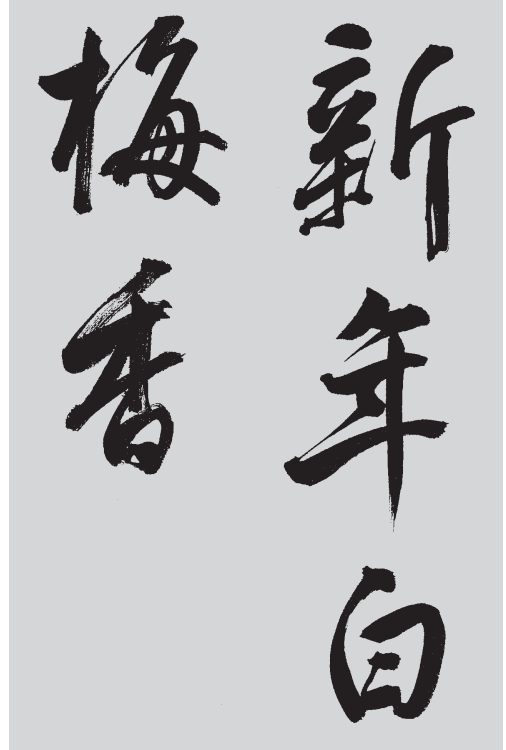 新年白
梅香